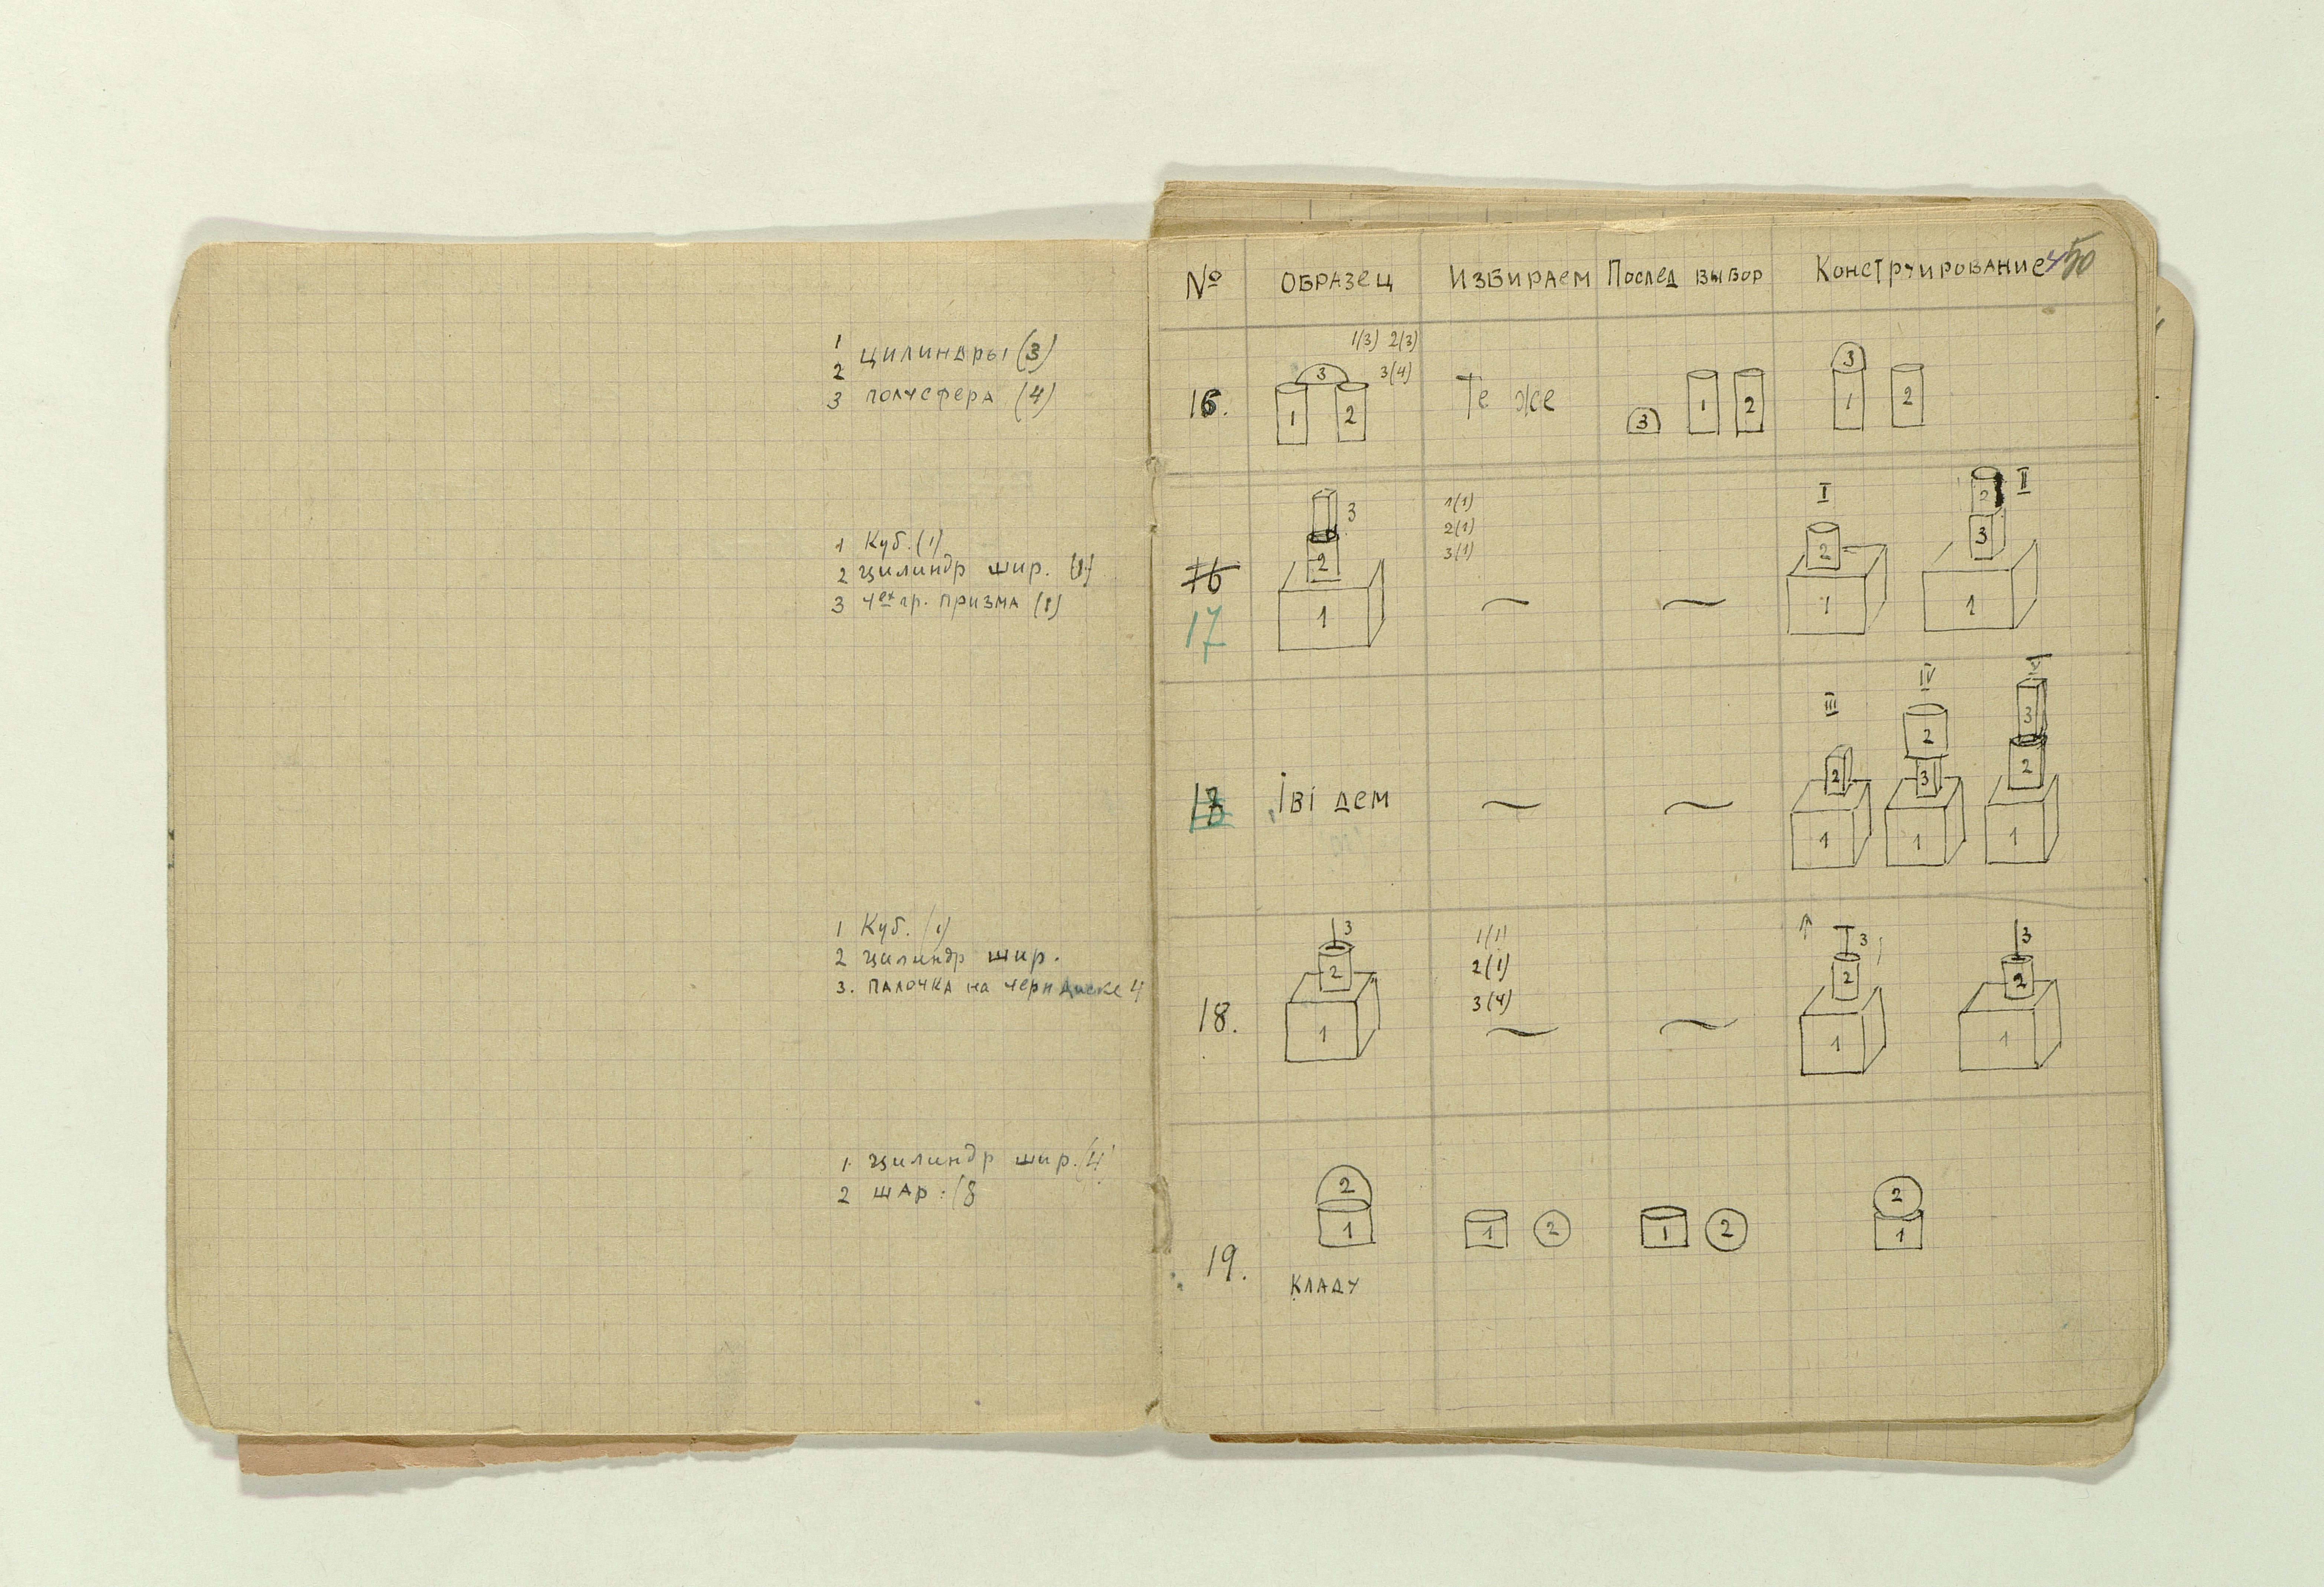 1
2 цилиндры (3)
3 полусфера (4)
1 Куб. (1)
2 цилиндр шир. (1)
3 4ех гр. призма (1)
1 Куб. (1)
2 цилиндр шир.
3. палочка на черн диске 4
1. цилиндр шир. (4
2 шар. (8
№ Образец Избираем Послед выбор Конструирование
50
1(3) 2(3)
3(4)
16. 3 1 2 Те же 3 1 2 3 1 2
16
17
3 2 1
1(1)
2(1)
3(1)
I 2 1
II 2 3 1
Іві дем
III 2 1
IV 2 3 1
V 3 2 1
18.
3 2 1
1(1)
2(1)
3(4)
3 2 1
3 2 1
19.
2 1
1 2
1 2
2 1
кладу